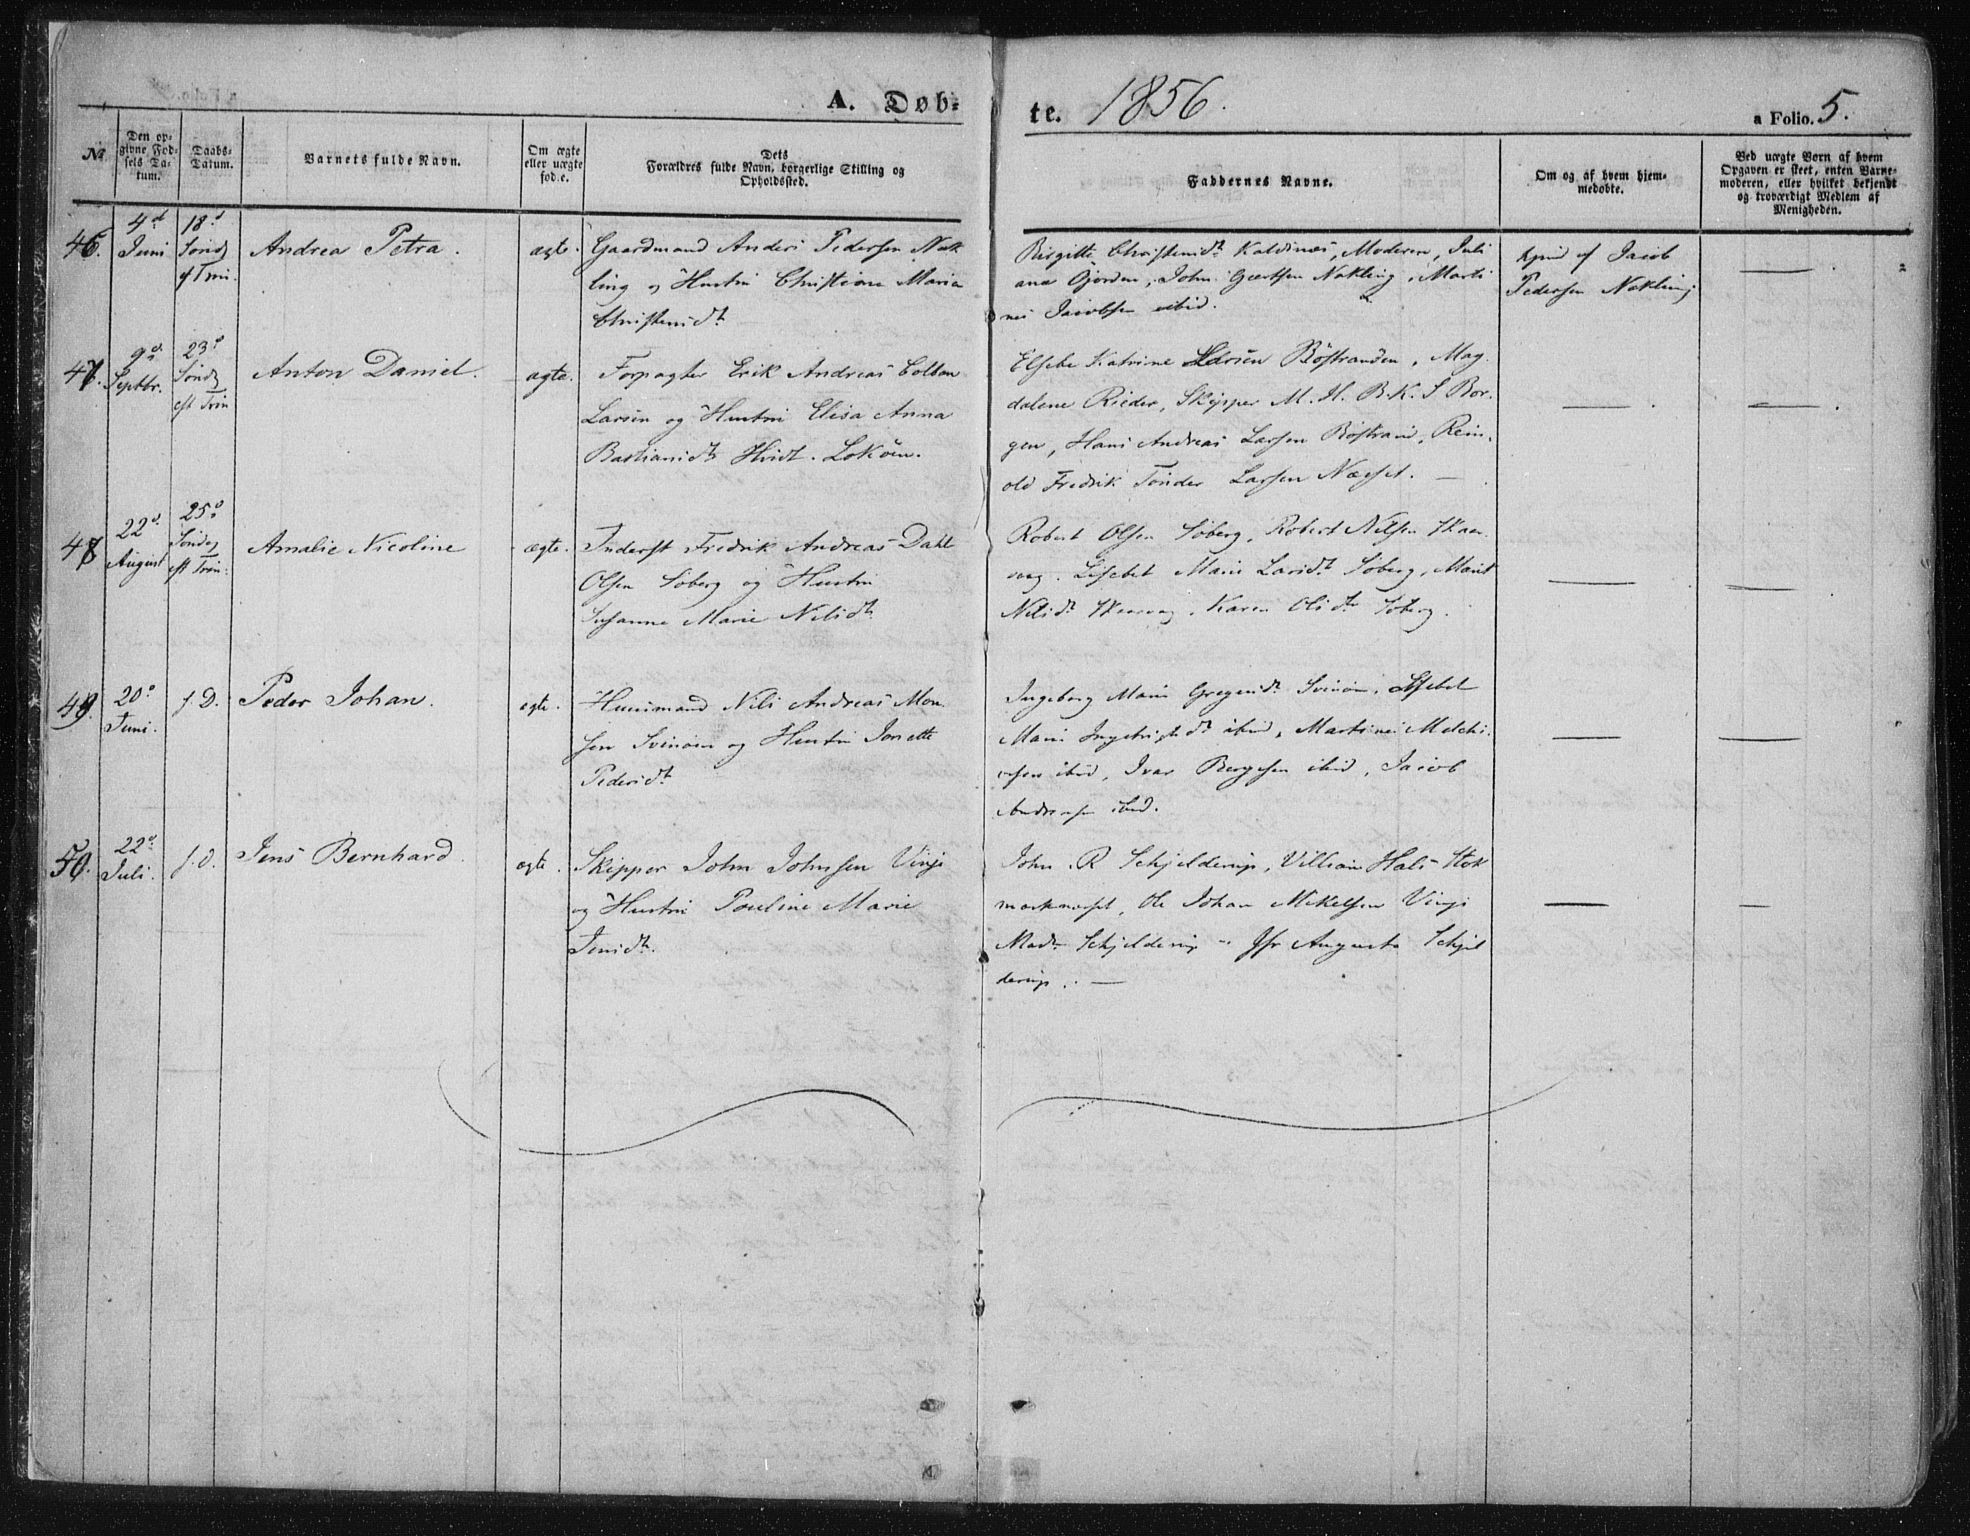 A. Døb-
te. 1856.
a Folio. 5.
№
Den op-
givne Fød-
sels Da-
tum.
Daabs-
Datum.
Barnets fulde Navn.
Om ægte
eller uægte
fød.e.
Dets
Forældres fulde Navn, borgerlige Stilling og
Opholdssted.
Faddernes Navne.
Om og af hvem hjem-
medøbte.
Ved uægte Børn af hvem
Opgaven er skeet, enten Barne-
moderen, eller hvilket bekjendt
og troværdigt Medlem af
Menigheden.
46.
4d
Juni
18d
Sønd
ef Trin.
Andrea Petra.
ægte.
Gaardmand Anders Pedersen Nak
ling og Hustru Christiane Maria
Christensdt
Birgitte Christensdt Kaldnæs, Moderen, Juli
ana Gjorden, John Gjertsen Nakling, Marti
nes Jacobsen ibid.
hjmd af Jacob
Pedersen Nakling
47.
9d
Septbr.
23d
Sønd
eft Trin
Anton Daniel.
ægte.
Forpagter Erik Andreas Colban
Larsen og Hustru Elisa Anna
Bastiansdt Hvidt. Lokøen.
Elsebe Katrine Larsen Røstranden, Mag
dalene Rieder, Skipper M. H. B. K. S Bor-
gen, Hans Andreas Larsen Røstrand, Rein-
old Fredrik Tønder Larsen Næsset. —
48
22d
August
25d
Søndag
eft Trin.
Amalie Nicoline
ægte.
Inderst Fredrik Andreas Dahl
Olsen Søberg og Hustru
Susanne Marie Nilsdt
Robert Olsen Søberg, Robert Nilsen Skaar
vaag. Lisebet Marie Larsdt Søberg, Marit
Nilsdt Skarvag, Karen Olsdtr Søberg.
49.
20d
Juni.
s. D.
Peder Johan.
ægte.
Huusmand Nils Andreas Mon
sen Svinøen og Hustru Jonette
Pedersdt
Ingeborg Marie Gregersdt Svinøen, Lisebet
Marie Ingebrigtsdt ibid, Martines Melchi
orsen ibid, Ivar Børgesen ibid, Jacob
Andreasen ibid.
50.
22d
Juli.
s. D.
Jens Bernhard.
ægte.
Skipper John Johnsen Vinje
og Hustru Pauline Marie
Jensdt.
John R Schjelderup, Villian Hals Stok
marknæsset, Ole Johan Mikelsen Vinje
Madm Schjelderup. Jfr Augusta Schjel
derup. —